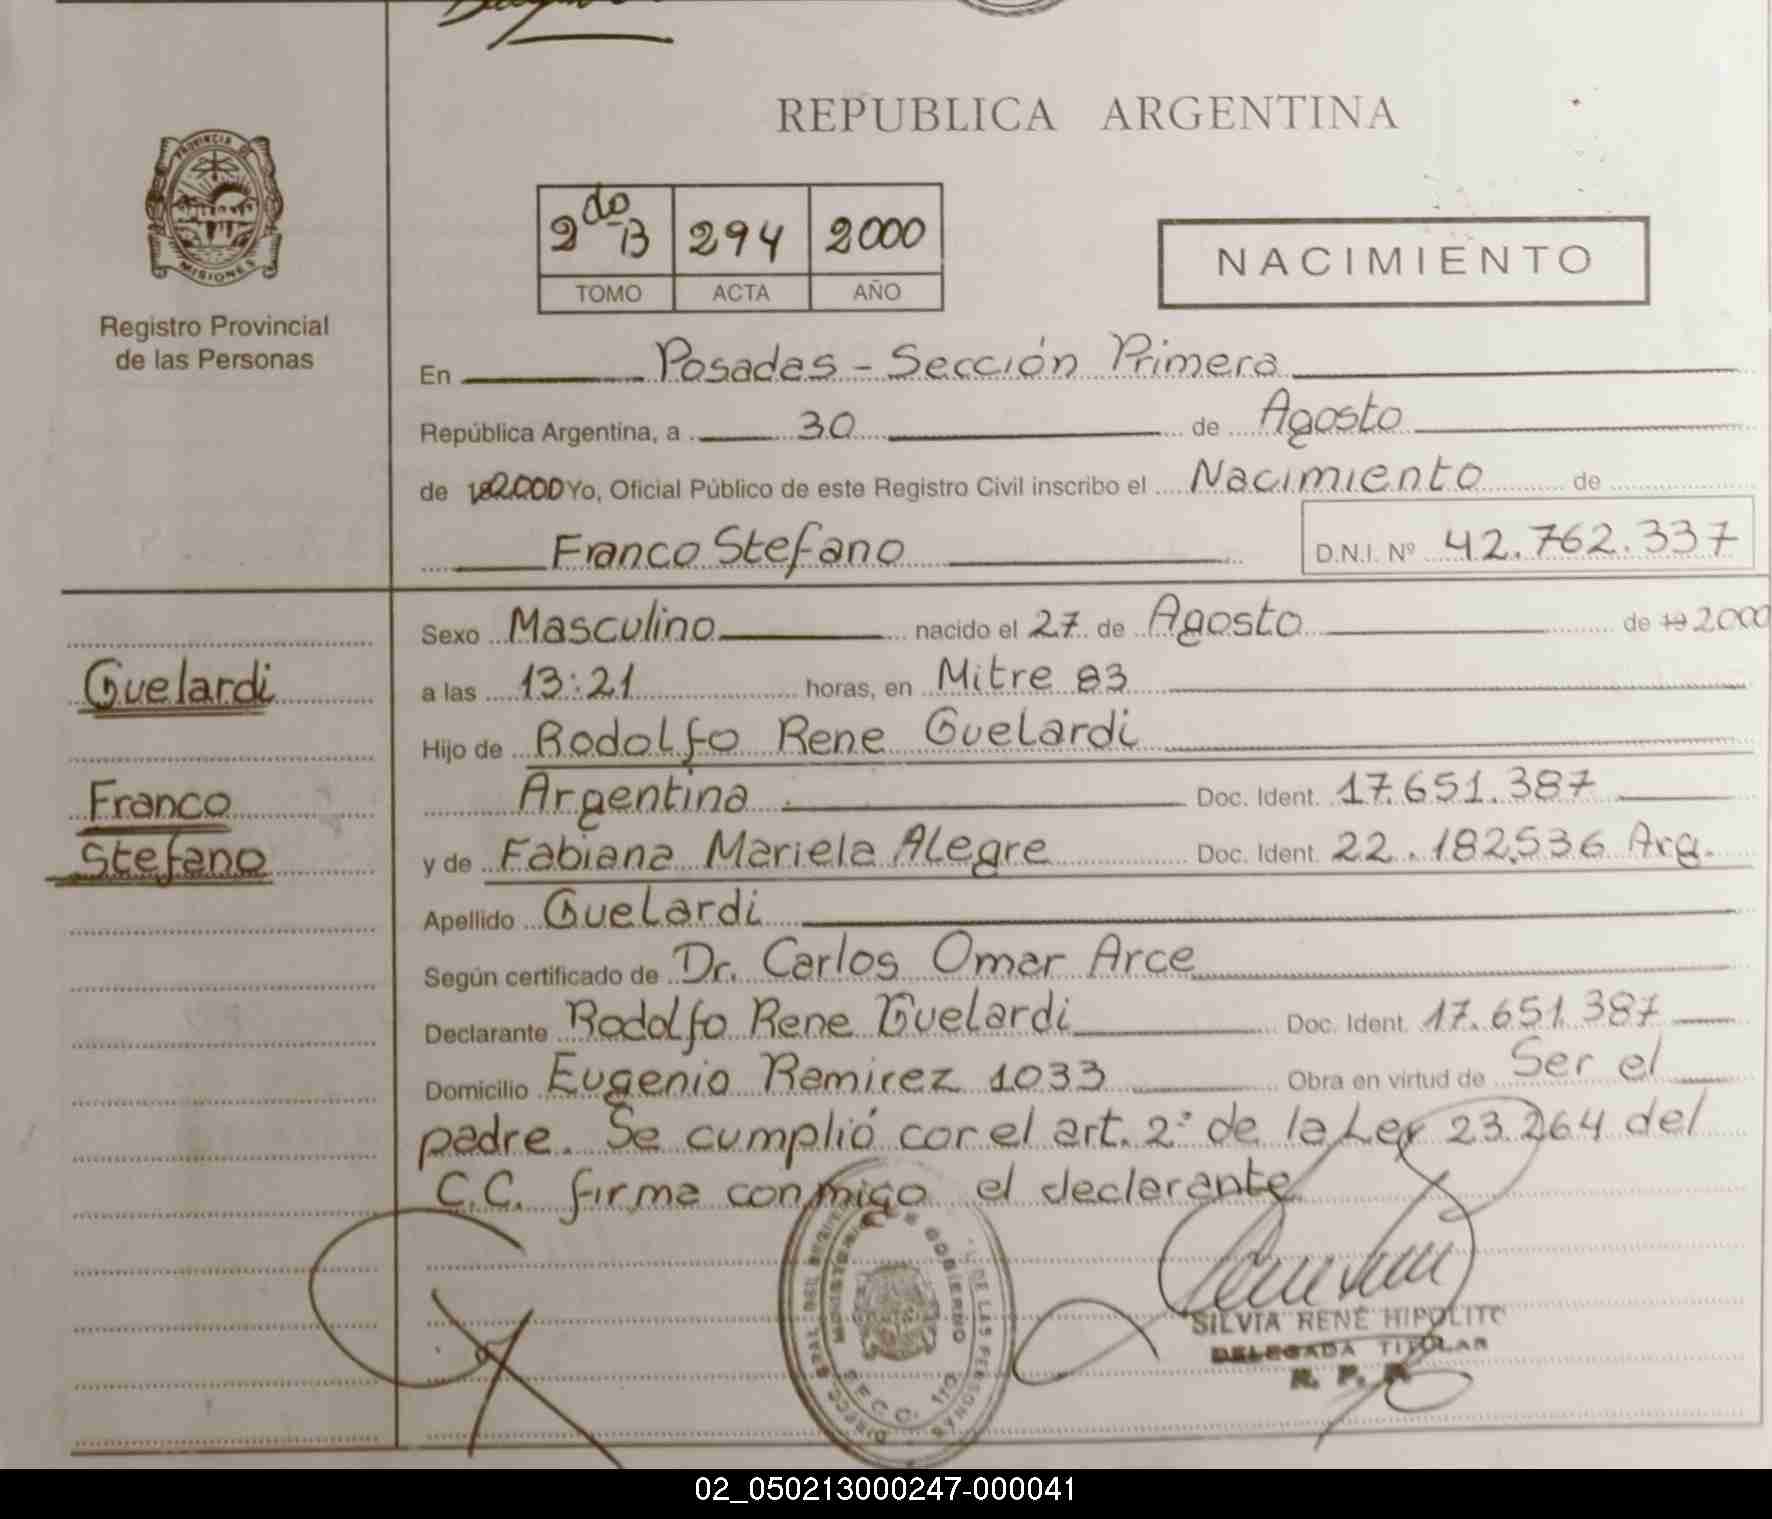 REPUBLICA ARGENTINA
PROVINCIA DE
MISIONES
Registro Provincial
de las Personas
2do B 294 2000
TOMO ACTA AÑO
NACIMIENTO
En Posadas - Sección Primera
República Argentina, a 30 de Agosto
de 2000 Yo, Oficial Público de este Registro Civil inscribo el Nacimiento de
Franco Stefano D.N.I. Nº 42.762.337
Guelardi
Franco
Stefano
Sexo Masculino nacido el 27 de Agosto de 19 2000
a las 13:21 horas, en Mitre 83
Hijo de Rodolfo Rene Guelardi
Argentina Doc. Ident. 17.651.387
y de Fabiana Mariela Alegre Doc. Ident. 22.182.536 Arg.
Apellido Guelardi
Según certificado de Dr. Carlos Omar Arce
Declarante Rodolfo Rene Guelardi Doc. Ident. 17.651.387
Domicilio Eugenio Ramirez 1033 Obra en virtud de Ser el
padre. Se cumplió cor el art. 2º de la Ley 23.264 del
C.C. firma conmigo el declarante
MINISTERIO DE GOBIERNO
SECC. 1ra
SILVIA RENE HIPOLITO
DELEGADA TITULAR
R. P. P.
02_050213000247-000041